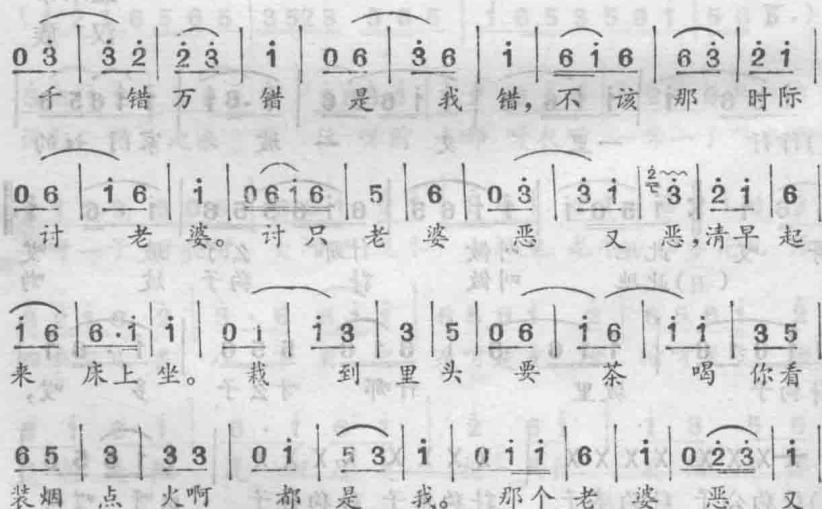 0 3̇ | 3̇ 2̇ | 2̇ 3̇ | 1̇ | 0 6 | 3̇ 6 | 1̇ | 6 1̇ 6 | 6 3̇ | 2̇ 1̇
千 错 万 错 是 我 错, 不 该 那 时际
0 6 | 1̇ 6 | 1̇ | 0 6 1̇ 6 | 5 | 6 | 0 3̇ | 3̇ 1̇ | 3̇ | 2̇ 1̇ | 6
讨 老 婆。 讨 只 老 婆 恶 又 恶, 清早 起
1̇ 6 | 6·1̇ | 1̇ | 0 1̇ | 1̇ 3 | 3 | 5 | 0 6 | 1̇ 6 | 1̇ 1̇ | 3 5
来 床上 坐。 栽 到 里 头 要 茶 喝 你看
6 5 | 3 | 3 3 | 0 1̇ | 5 3 | 1̇ | 0 1̇ 1̇ | 6 | 1̇ | 0 2̇ 3̇ | 1̇
装烟 点 火啊 都 是 我。 那个 老 婆 恶 又